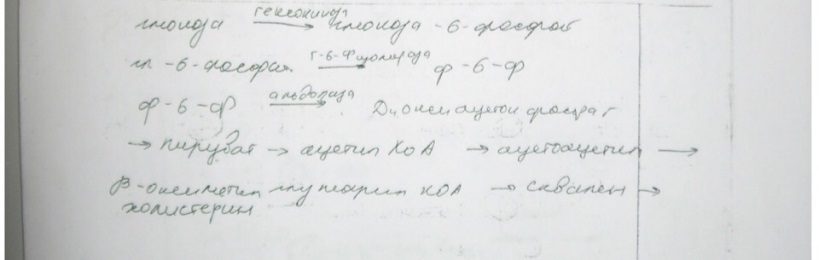 глюкоза гексокиназа → глюкоза -6-фосфат
гл -6-фосфат г-6-ф изомераза → ф -6-ф
ф -6-ф альдолаза → Диоксиацетон фосфат
→ пируват → ацетил КоА → ацетоацетил →
β-оксиметил глутарил КОА → сквален →
холистерин